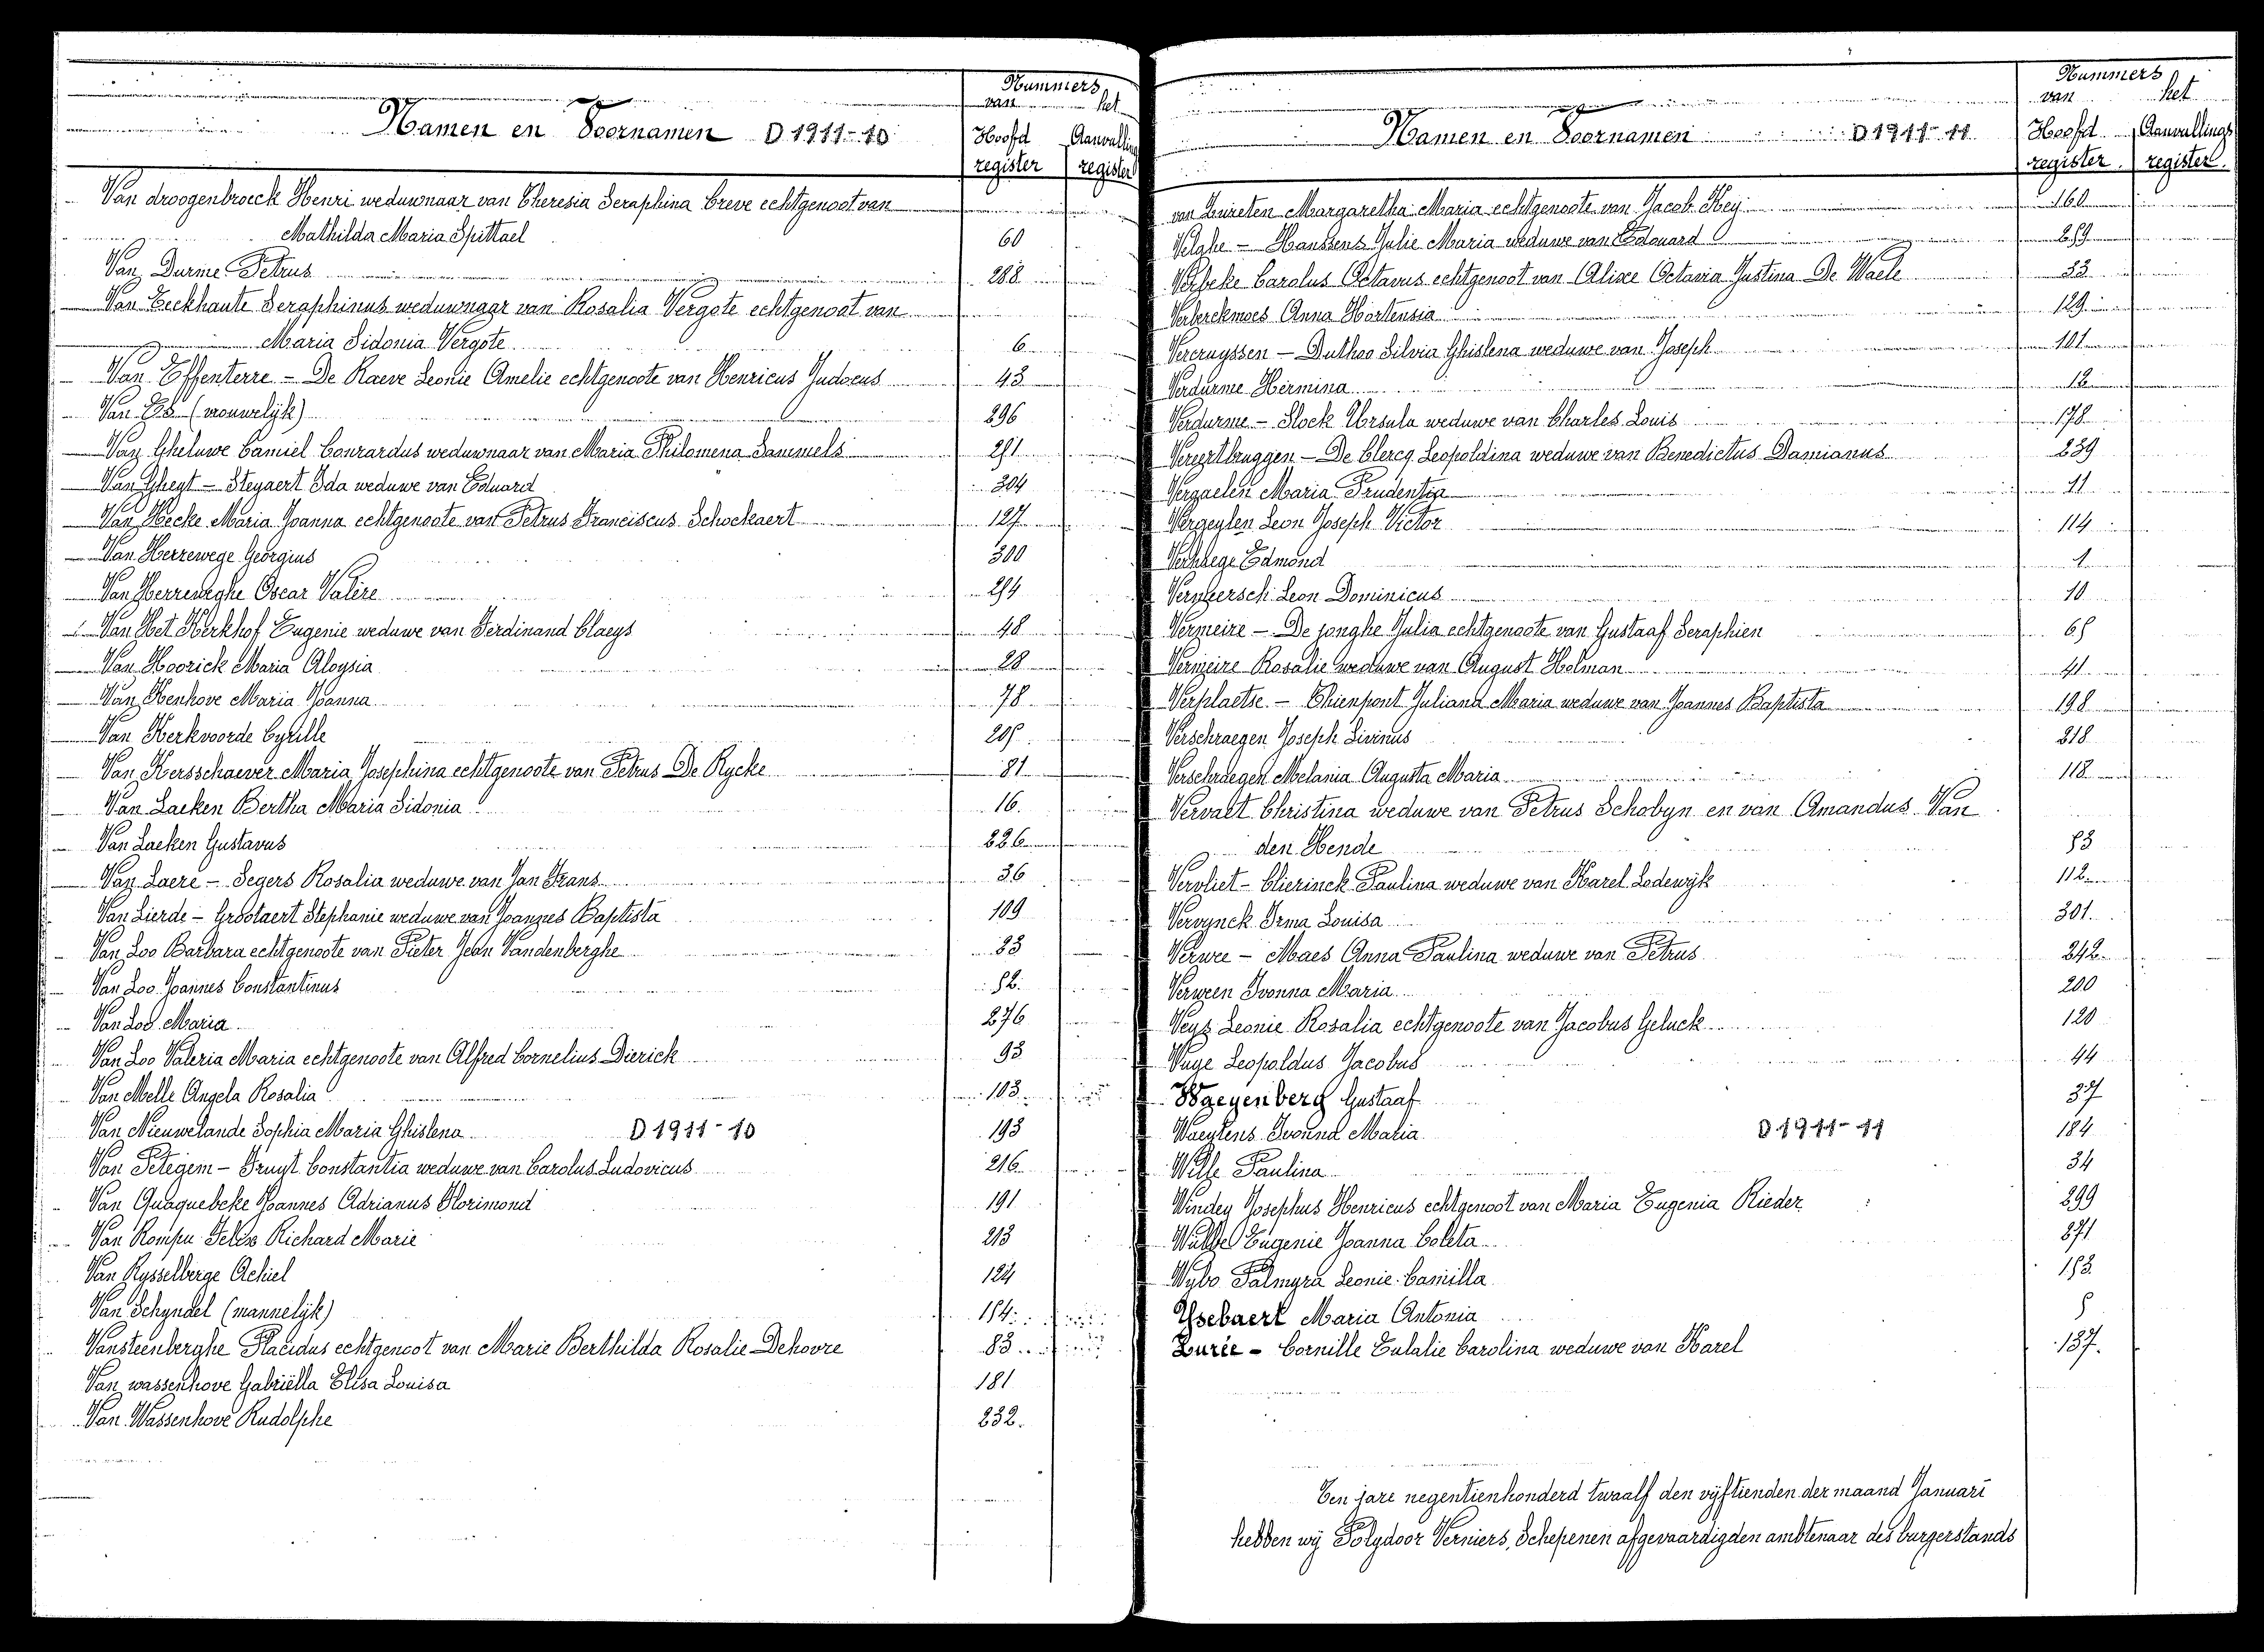 Nummers
van het
Namen en Voornamen D 1911-10 Hoofd Aanvulling
register register
Van droogenbroeck Henri weduwnaar van Theresia Seraphina Creve echtgenoot van
Mathilda Maria Spittael 60
Van Durme Petrus 288
Van Eeckhaute Seraphinus weduwnaar van Rosalia Vergote echtgenoot van
Maria Sidonia Vergote 6
Van Effenterre - De Raeve Leonie Amelie echtgenoote van Henricus Judocus 43
Van Es (vrouwelijk) 296
Van Gheluwe Camiel Conrardus weduwnaar van Maria Philomena Sammels 251
Van Gheyt - Steyaert Ida weduwe van Eduard 304
Van Hecke Maria Joanna echtgenoote van Petrus Franciscus Schockaert 127
Van Herrewege Georgius 300
Van Herreweghe Oscar Valère 254
Van Het Kerkhof Eugenie weduwe van Ferdinand Claeys 48
Van Hoorick Maria Aloysia 28
Van Kenhove Maria Joanna 78
Van Kerkvoorde Cyrille 205
Van Kersschaever Maria Josephina echtgenoote van Petrus De Rycke 81
Van Laeken Bertha Maria Sidonia 16.
Van Laeken Gustavus 226
Van Laere - Segers Rosalia weduwe van Jan Frans 36
Van Lierde - Grootaert Stephanie weduwe van Joannes Baptista 109
Van Loo Barbara echtgenoote van Pieter Jean Vandenberghe 23
Van Loo Joannes Constantinus 52.
Van Loo Maria 276
Van Loo Valeria Maria echtgenoote van Alfred Cornelius Dierick 93
Van Melle Angela Rosalia 103
Van Nieuwelande Sophia Maria Ghislena D 1911-10 193
Van Petegem - Pruyt Constantia weduwe van Carolus Ludovicus 216
Van Quaquebeke Joannes Adrianus Florimond 191
Van Rompu Felix Richard Marie 213
Van Rysselberge Achiel 124
Van Schyndel (mannelijk) 154
Vansteenberghe Placidus echtgenoot van Marie Berthilda Rosalie Dehovre 83
Van wassenhove Gabriëlla Elisa Louisa 181
Van Wassenhove Rudolphe 232.
Nummers
van het
Namen en Voornamen D 1911-11 Hoofd Aanvullings
register register
van Zuirelen Margaretha Maria echtgenoote van Jacob Hey 160
Velghe - Hanssens Julie Maria weduwe van Edouard 259
Verbeke Carolus Octavus echtgenoot van Alixe Octavia Justina De Waele 33
Verberckmoes Anna Hortensia 129
Vercruyssen - Duthoo Silvia Ghislena weduwe van Joseph 101
Verdurme Hermina 12
Verdurme - Stock Ursula weduwe van Charles Louis 178
Vereertbruggen - De Clercq Leopoldina weduwe van Benedictus Damianus 239
Vergaelen Maria Prudentia 21
Vergeylen Leon Joseph Victor 114
Verhaege Edmond 1
Vermeersch Leon Dominicus 10
Vermeire - De jonghe Julia echtgenoote van Gustaaf Seraphien 65
Vermeire Rosalie weduwe van August Holman 41
Verplaetse - Thienpont Juliana Maria weduwe van Joannes Baptista 198
Verschraegen Joseph Livinus 218
Verschraegen Melania Augusta Maria 118
Vervaet Christina weduwe van Petrus Schobyn en van Amandus Van
den Hende 53
Vervliet - Clierinck Paulina weduwe van Karel Lodewyk 112
Vervynck Irma Louisa 301.
Verwee - Maes Anna Paulina weduwe van Petrus 242
Verween Ivonna Maria 200
Veys Leonie Rosalia echtgenoote van Jacobus Geluck 120
Vuye Leopoldus Jacobus 44
Waeyenberg Gustaaf 37
Waeytens Ivonna Maria D 1911-11 184
Wille Paulina 34
Windey Josephus Henricus echtgenoot van Maria Eugenia Rieder 299
Wulffe Eugenie Joanna Coleta 271
Wybo Palmyra Leonie Camilla 153
Ysebaert Maria Antonia 5
Zurée - Cornille Eulalie Carolina weduwe van Karel 137.
Ten jare negentienhonderd twaalf den vyftienden der maand Januari
hebben wij Polydoor Verniers, Schepenen afgevaardigden ambtenaar des burgerstands